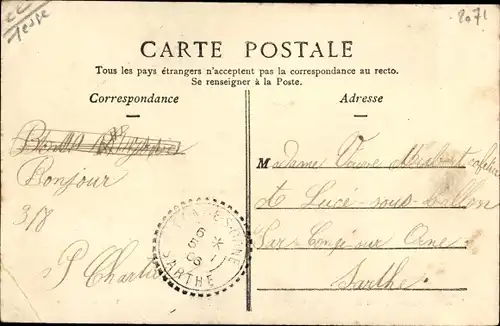 2071
CARTE POSTALE
Tous les pays étrangers n'acceptent pas la correspondance au recto.
Se renseigner à la Poste.
Correspondance
Adresse
Bonjour
3/8
P Chartier
Madame Veuve
à Lucé-sous-Ballon
Par sur
Sarthe
6
5
06
SARTHE